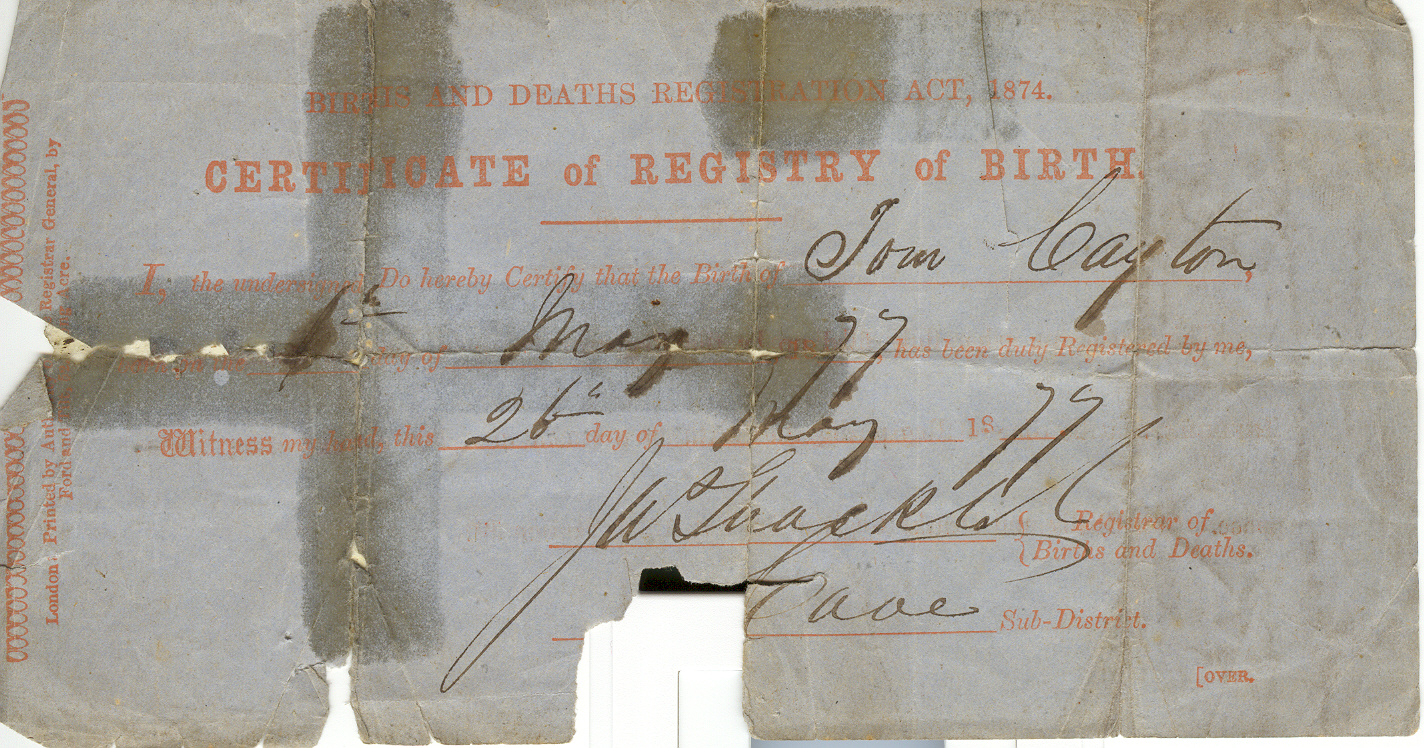 BIRTHS AND DEATHS REGISTRATION ACT, 1874.
CERTIFICATE of REGISTRY of BIRTH.
I, the undersigned Do hereby Certify that the Birth of Tom Cayton,
6th day of May 1877 has been duly Registered by me,
Witness my hand, this 26th day of May 1877
Registrar of
Births and Deaths.
Cave Sub-District.
[OVER.
London: Printed by Auth Registrar General, by
Ford and Acre.